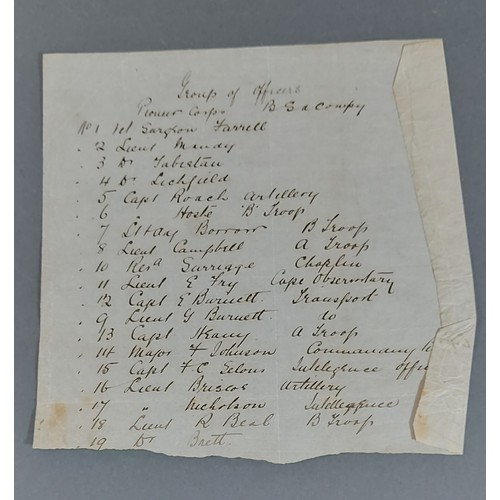 Group of Officers
Pioneer Corps B S a compy
No 1 Vet Surgeon Farrell
. 2 Lieut Mandy
. 3 Dr Tabuteau
. 4 Dr Lichfield
. 5 Capt Roach Artillery
. 6 Hoste B Troop
. 7 Lt & Adj Borrow B Troop
. 8 Lieut Campbell A Troop
. 10 Revd Surridge Chaplin
. 11 Lieut E Fry Cape Observatory
. 12 Capt E Burnett. Transport
. 9 Lieut G Burnett. to
. 13 Capt Heany A Troop
. 14 Major F Johnson Commanding
. 15 Capt F C Selous Intelegence Offi
. 16 Lieut Briscoe Artillery
. 17 " Nicholson Intellegence
. 18 Lieut R Beal B Troop
. 19 Dr Brett.